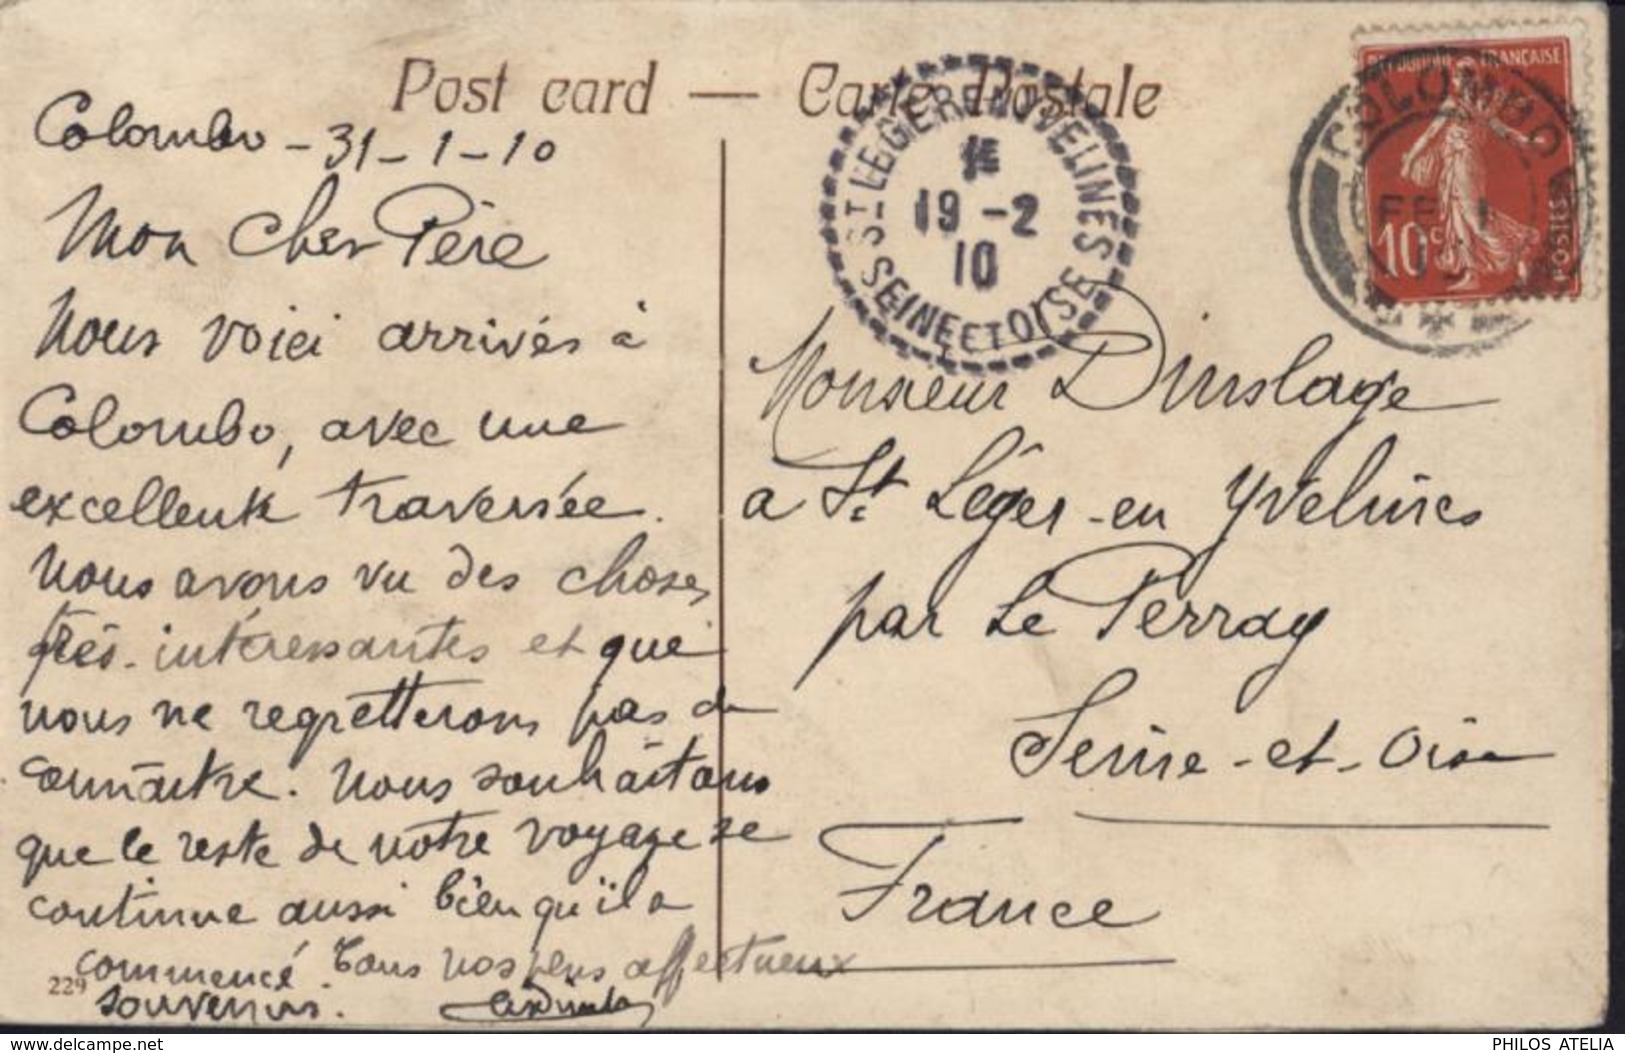 Post card — Carte Postale
Colombo - 31 - 1 - 10
Mon Cher Père
Nous voici arrivés à
Colombo, avec une
excellente traversée.
Nous avons vu des choses
très intéressantes et que
nous ne regretterons pas de
connaître. Nous souhaitons
que le reste de notre voyage se
continue aussi bien qu'il a
commencé. Tous nos plus affectueux
souvenirs.
229
ST LEGER-EN-YVELINES
1E
19 -2
10
SEINE ET OISE
REPUBLIQUE FRANÇAISE
10c
POSTES
COLOMBO
FE 1
10
Monsieur Dinslage
a St Léger-en Yvelines
par Le Perray
Seine-et-Oise
France
www.delcampe.net
PHILOS ATELIA